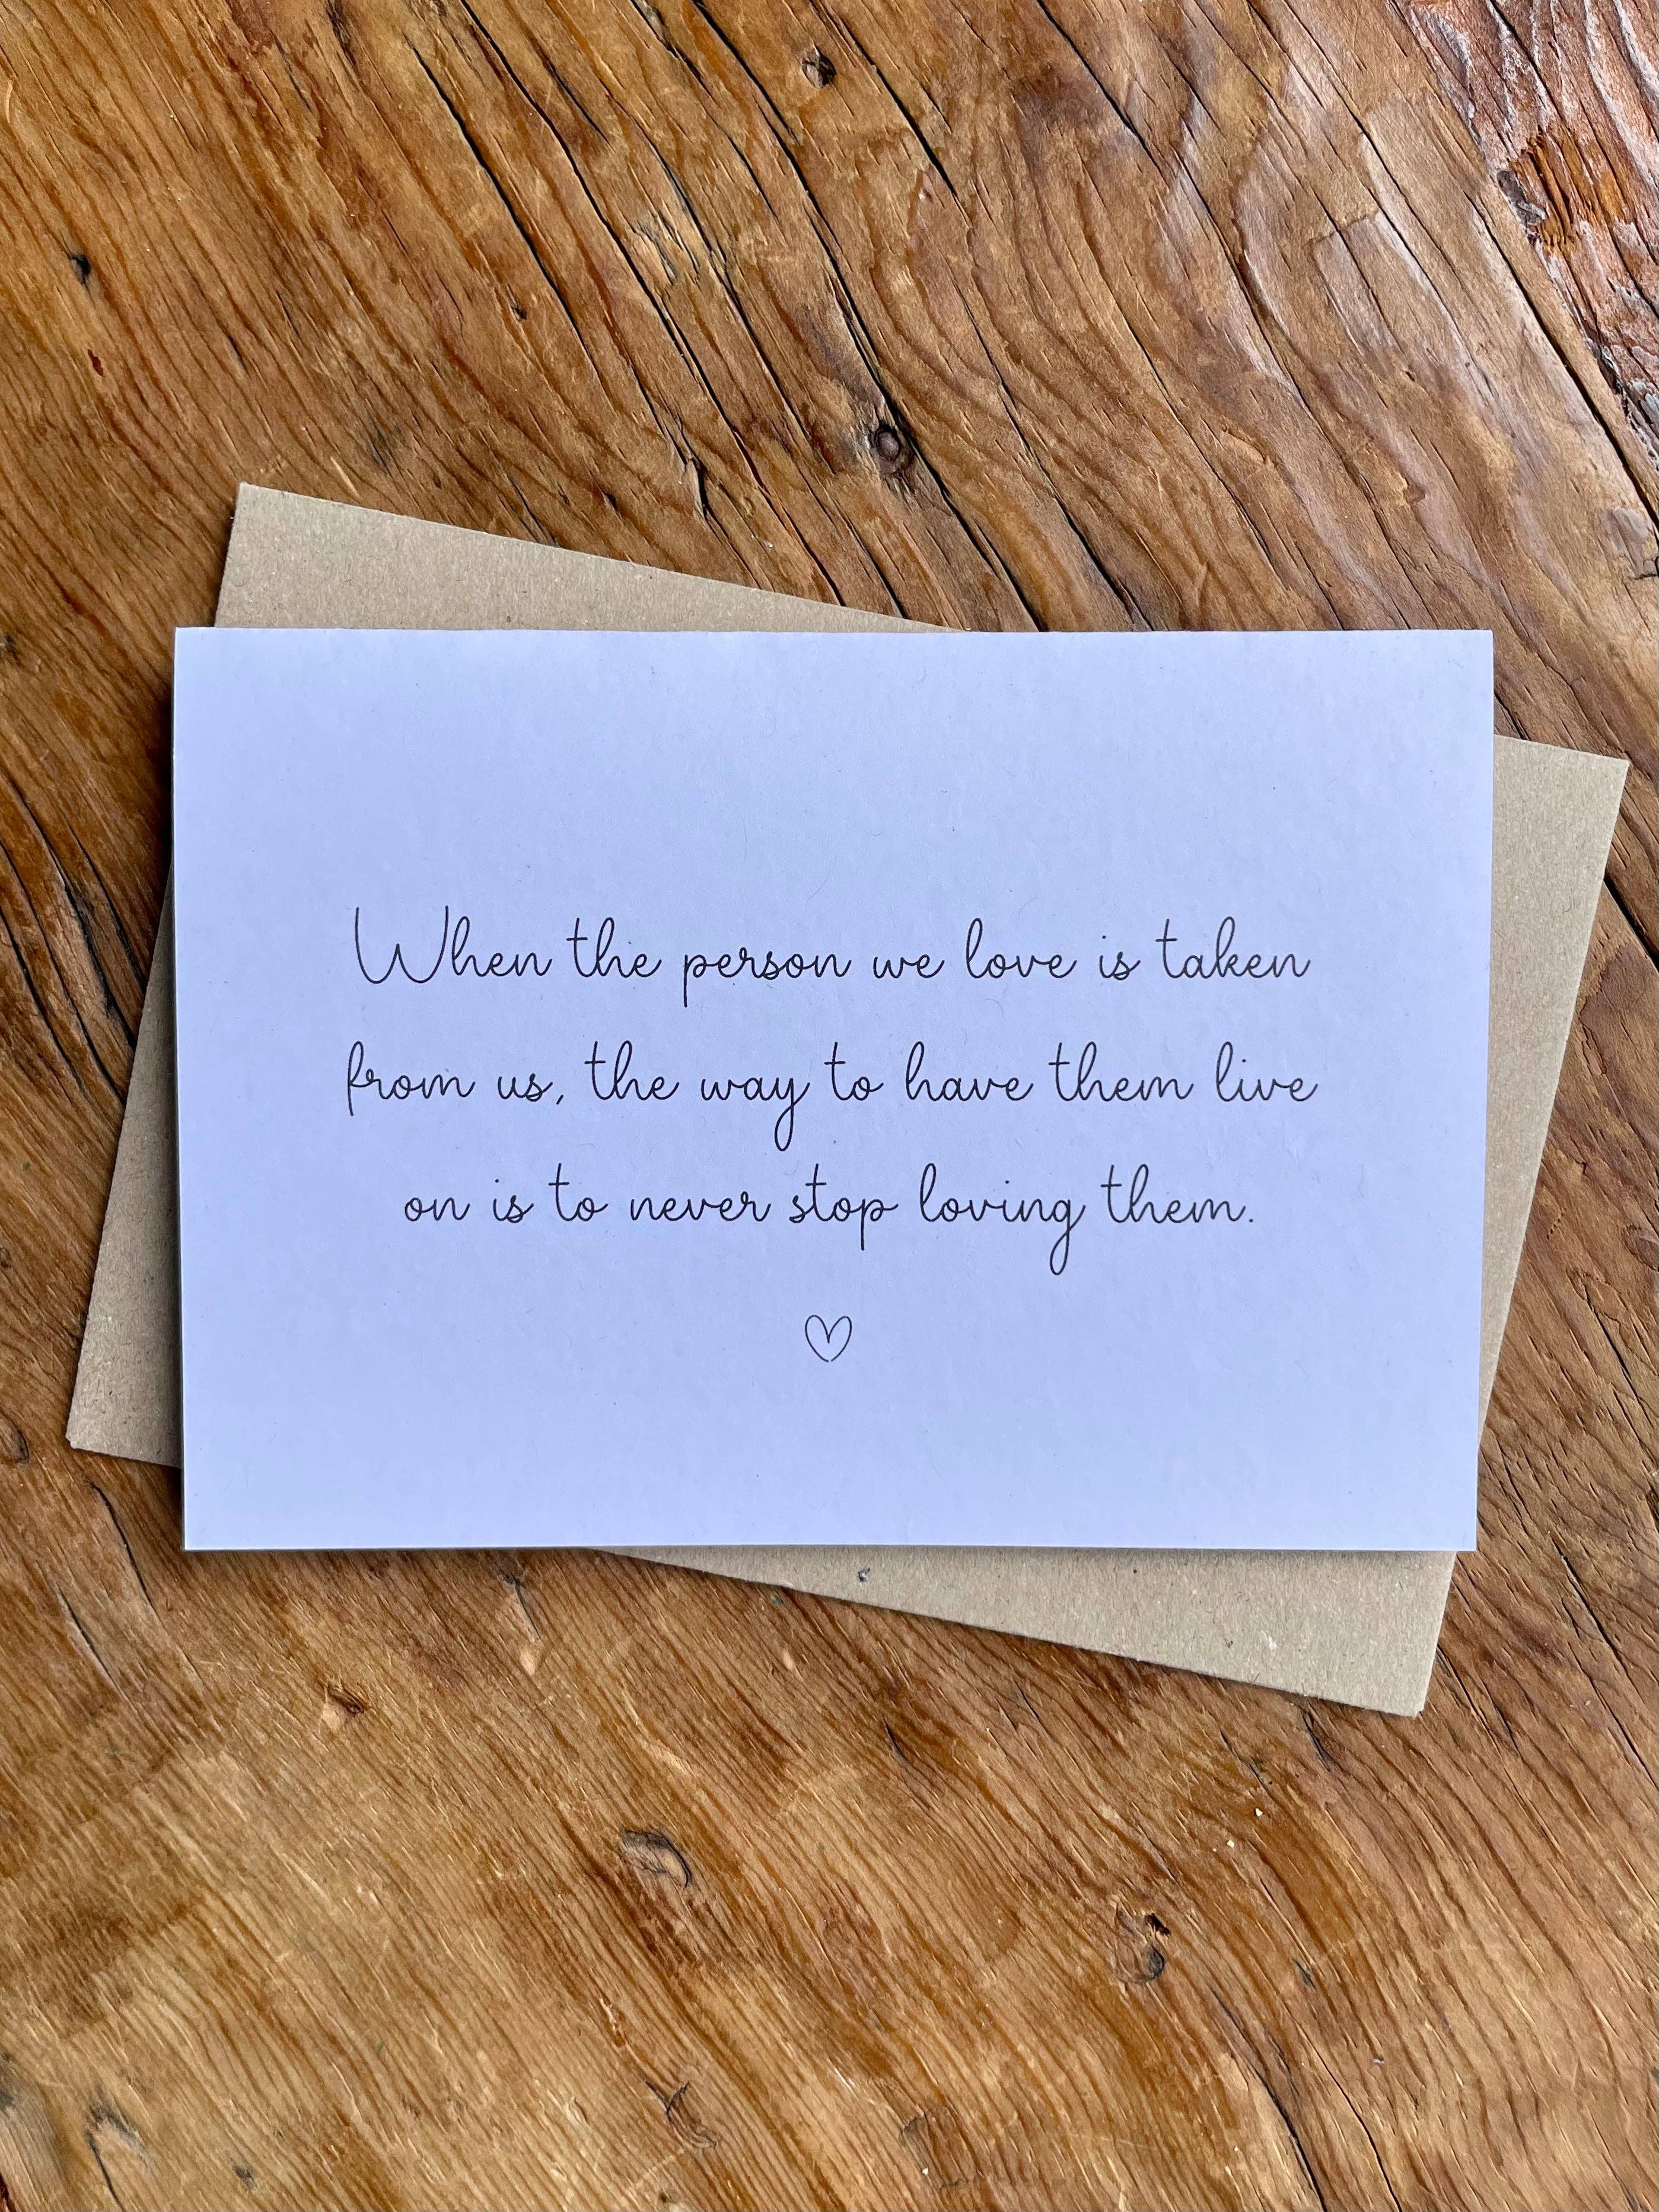 When the person we love is taken
from us, the way to have them live
on is to never stop loving them.